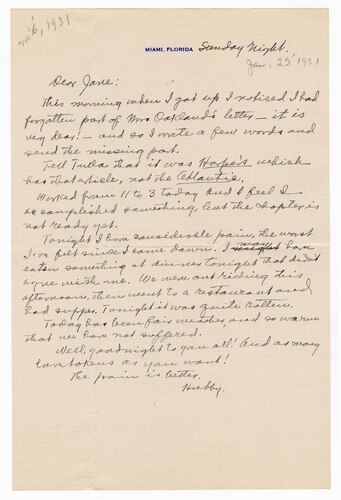 no 6, 1931
MIAMI, FLORIDA Sunday Night.
Jan. 25 1931
Dear Jane:
This morning when I got up I noticed I had
forgotten part of Mrs Oakland's letter – it is
very dear! – and so I write a few words and
send the missing part.
Tell Tulla that it was Harpers which
has that article, not the Atlantic.
Worked from 11 to 3 today and I feel I
accomplished something, but the chapter is
not ready yet.
Tonight I have considerable pain, the worst
I've felt since I came down. I have
eaten something at dinner tonight that didn't
agree with me. We were out riding this
afternoon, then went to a restaurant and
had supper. Tonight it was quite rotten.
Today has been fair weather, and so warm
that we have not suffered.
Well, goodnight to you all! And as many
love tokens as you want!
The pain is better.
Hubby.